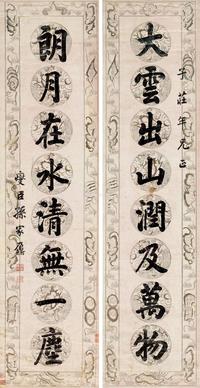 子莊年兄正
大雲出山潤及萬物
朗月在水清無一塵
燮臣孫家鼐